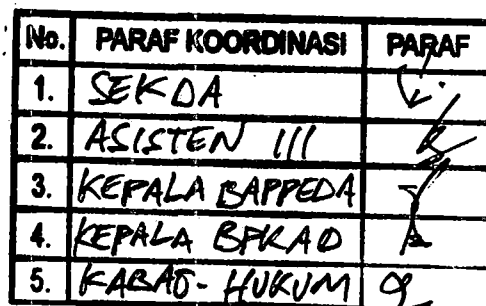 No. PARAF KOORDINASI PARAF
1. SEKDA
2. ASISTEN III
3. KEPALA BAPPEDA
4. KEPALA BPKAD
5. KABAG- HUKUM